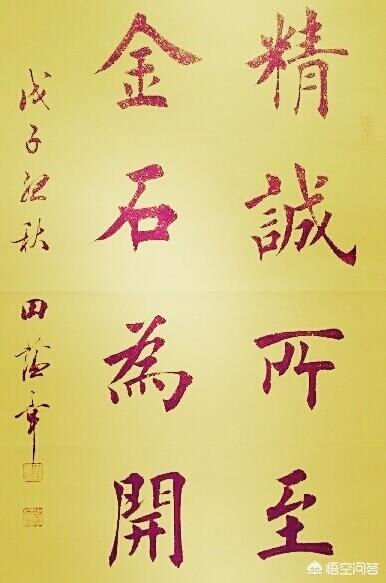 精誠所至
金石為開
戊子初秋 田蕴章
悟空问答